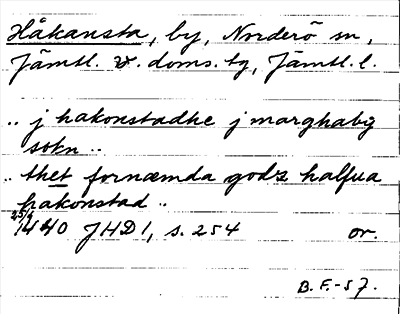 Håkansta, by, Norderö sn,
Jämtl. v. doms. tg, Jämtl. l.
.. j hakonstadhe j marghaby
sokn ..
.. thet fornæmda godz halfua
hakonstad ..
25/9 1440 JHD 1, s. 254 or.
B. F. -57.